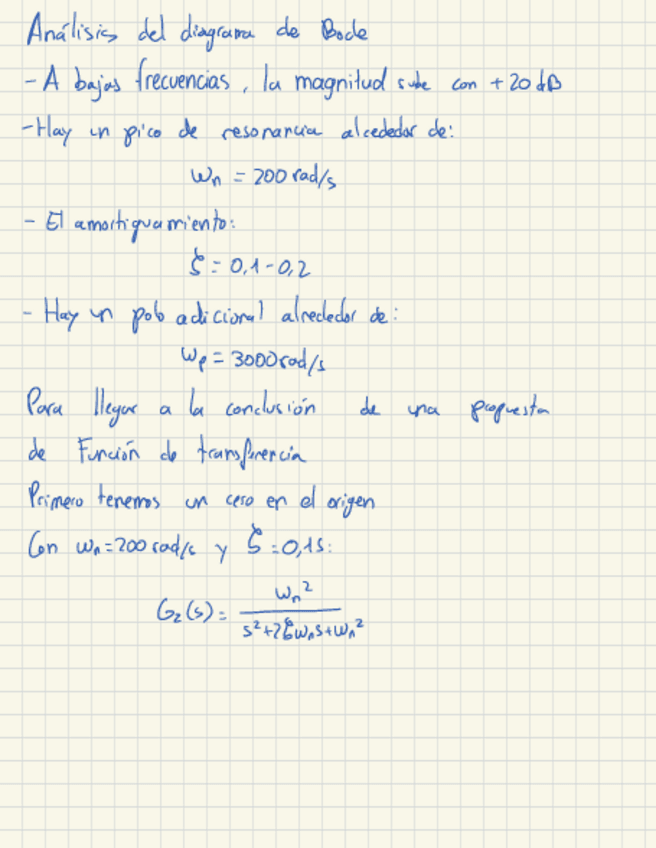 Análisis del diagrama de Bode
- A bajas frecuencias, la magnitud sube con +20 dB
- Hay un pico de resonancia alrededor de:
ωn = 200 rad/s
- El amortiguamiento:
ξ = 0,1 - 0,2
- Hay un polo adicional alrededor de:
ωp = 3000 rad/s
Para llegar a la conclusión de una propuesta
de Función de transferencia
Primero tenemos un cero en el origen
Con ωn = 200 rad/s y ξ = 0,15:
G2(s) = ωn² / (s² + 2ξωns + ωn²)